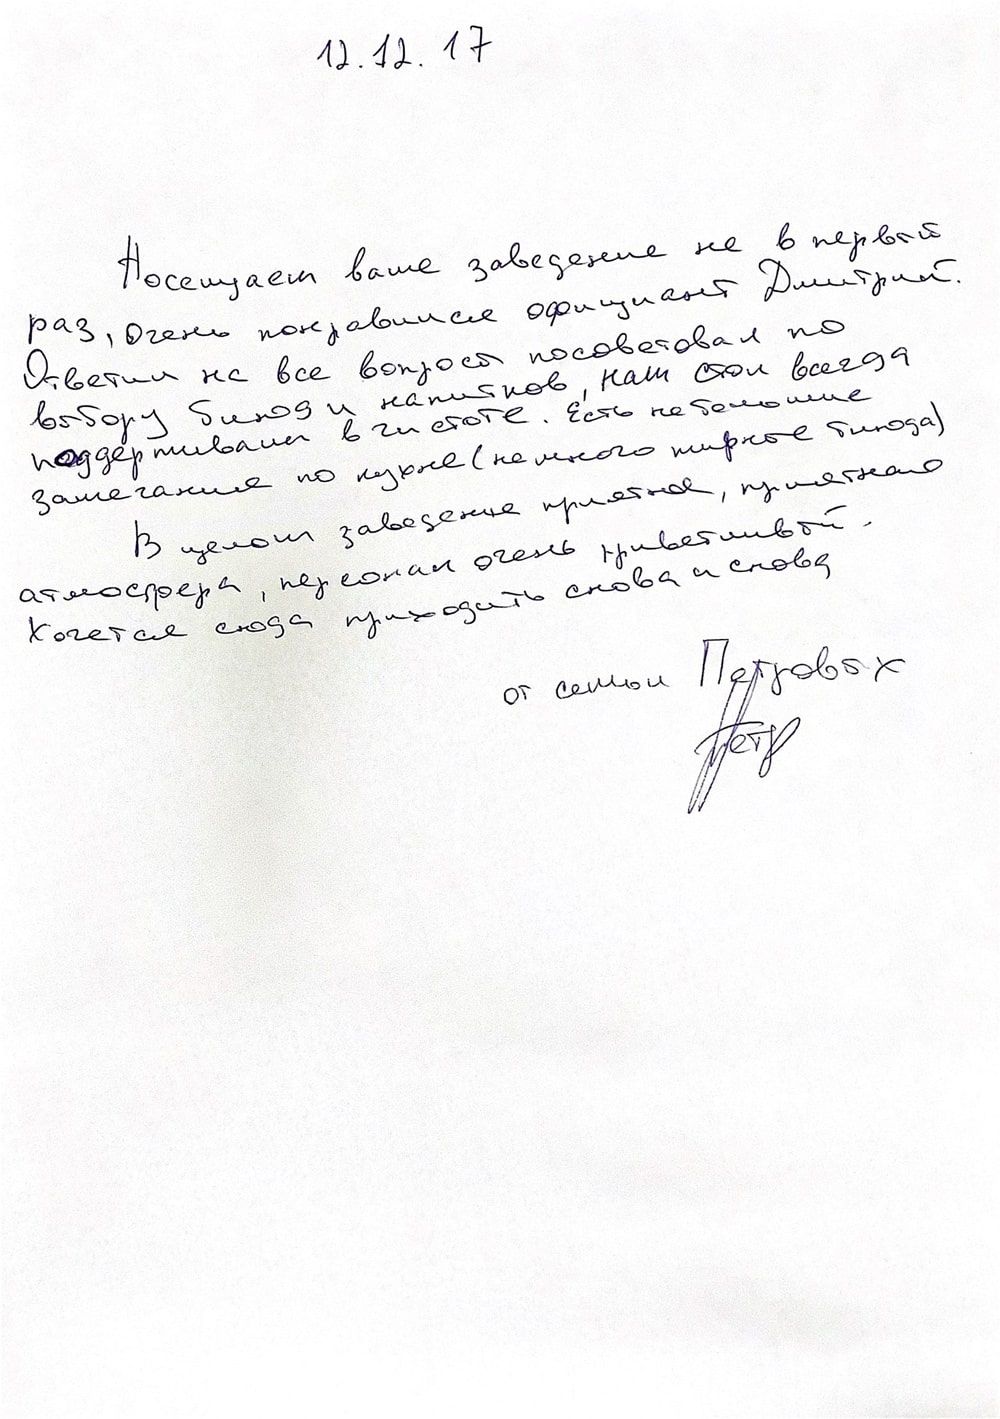 12.12.17
Посещаем ваше заведение не в первый
раз, очень понравился официант Дмитрий.
Ответил на все вопросы посоветовал по
выбору блюд и напитков, наш стол всегда
поддерживали в чистоте. Есть небольшие
замечания по кухне (немного жирные блюда)
В целом заведение приятное, приятная
атмосфера, персонал очень приветливый.
Хочется сюда приходить снова и снова
от семьи Петровых
Петр